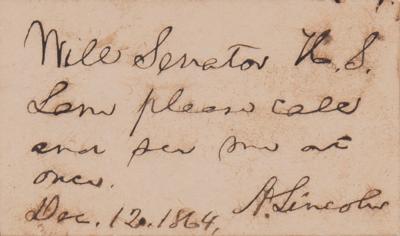 Will Senator H. S.
Lane please call
and see me at
once.
Dec. 12. 1864, A. Lincoln